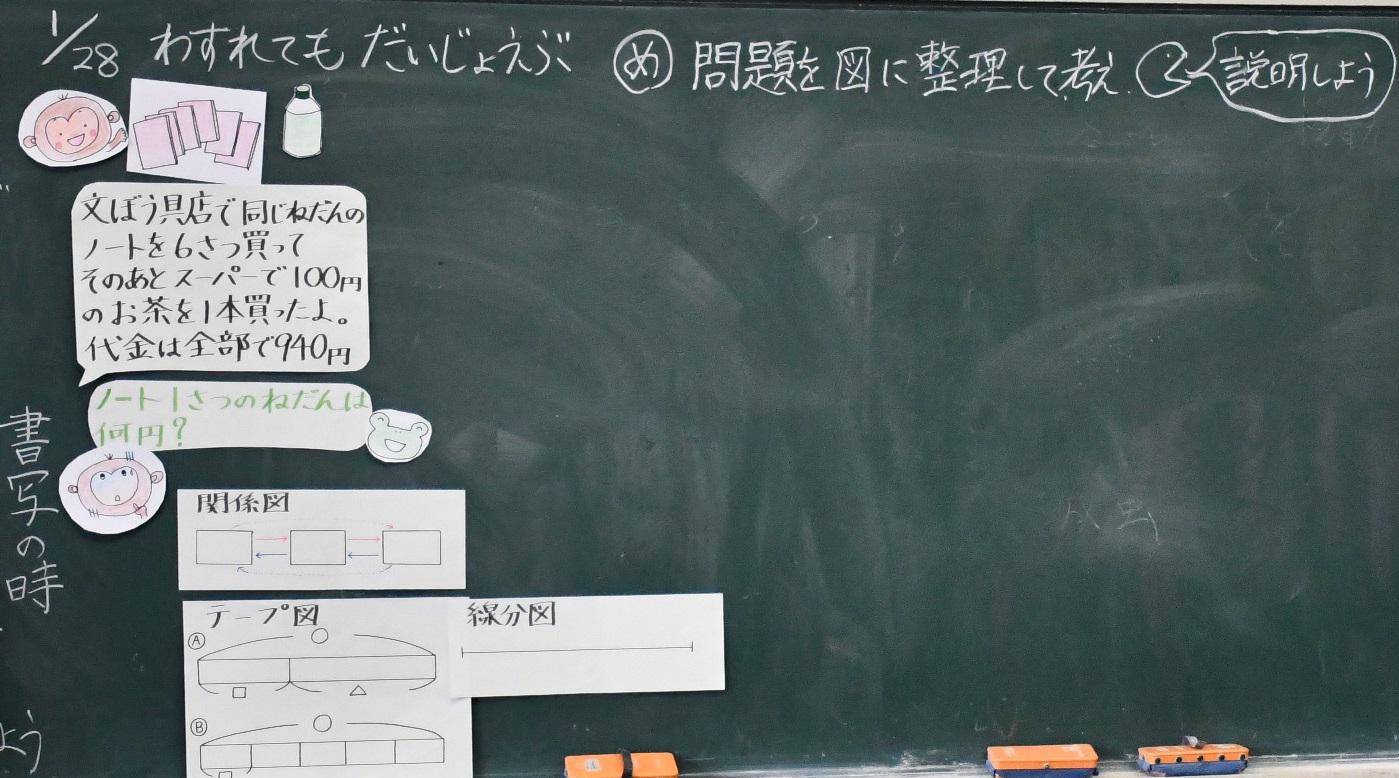 1/28 わすれても だいじょえぶ
め 問題を図に整理して考え 説明しよう
文ぼう具店で同じねだんの
ノートを6さつ買って
そのあとスーパーで100円
のお茶を1本買ったよ。
代金は全部で940円
ノート1さつのねだんは
何円?
書写の時
よう
関係図
テープ図
A
B
線分図